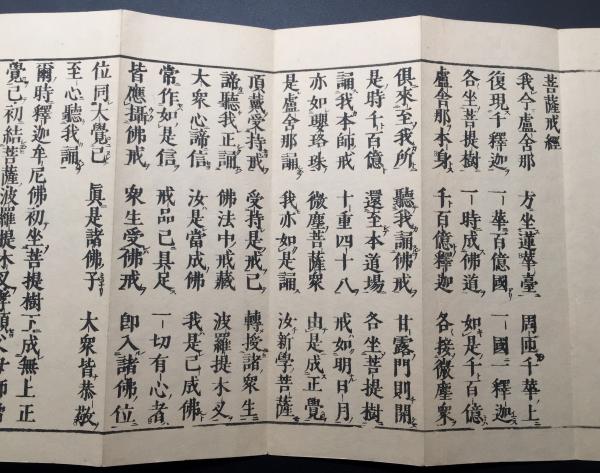 菩薩戒經
我今盧舍那　方坐蓮華臺　周匝千華上
復現千釋迦　一華百億國　一國一釋迦
各坐菩提樹　一時成佛道　如是千百億
盧舍那本身　千百億釋迦　各接微塵衆
俱來至我所　聽我誦佛戒　甘露門則開
是時千百億　還至本道場　各坐菩提樹
誦我本師戒　十重四十八　戒如明日月
亦如瓔珞珠　微塵菩薩衆　由是成正覺
是盧舍那誦　我亦如是誦　汝新學菩薩
頂戴受持戒　受持是戒已　轉授諸衆生
諦聽我正誦　佛法中戒藏　波羅提木叉
大衆心諦信　汝是當成佛　我是已成佛
常作如是信　戒品已具足　一切有心者
皆應攝佛戒　衆生受佛戒　卽入諸佛位
位同大覺已　眞是諸佛子　大衆皆恭敬
至心聽我誦
爾時釋迦牟尼佛初坐菩提樹下成無上正
覺已初結菩薩波羅提木叉孝順父母師